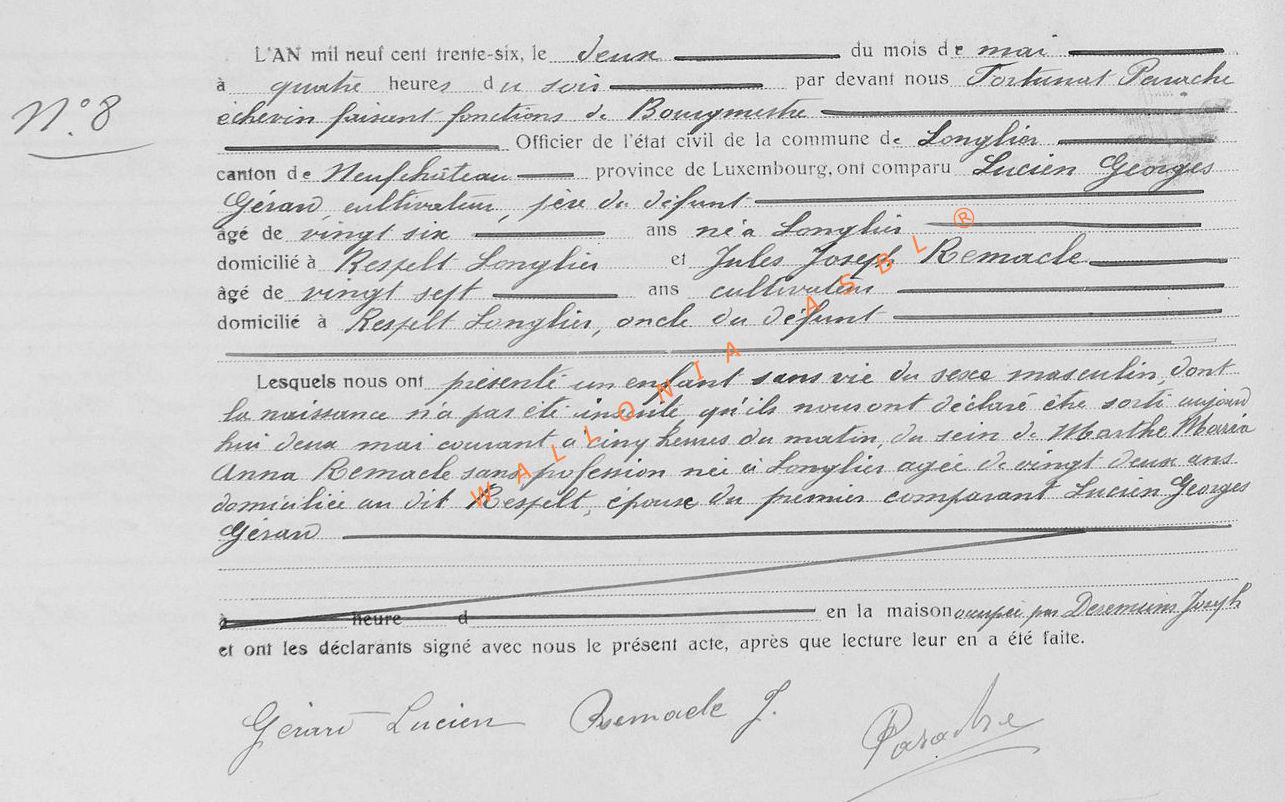 N° 8
L'AN mil neuf cent trente-six, le deux du mois de mai
à quatre heures du soir par devant nous Fortunat Parache
échevin faisant fonctions de Bourgmestre
Officier de l'état civil de la commune de Longlier
canton de Neufchâteau province de Luxembourg, ont comparu Lucien Georges
Gérard, cultivateur, père du défunt
âgé de vingt six ans né à Longlier
domicilié à Respelt Longlier et Jules Joseph Remacle
âgé de vingt sept ans cultivateur
domicilié à Respelt Longlier, oncle du défunt
Lesquels nous ont présenté un enfant sans vie du sexe masculin, dont
la naissance n'a pas été inscrite qu'ils nous ont déclaré être sorti aujourd
hui deux mai courant à cinq heures du matin, du sein de Marthe Maria
Anna Remacle sans profession née à Longlier agée de vingt deux ans
domiciliée au dit Respelt, épouse du premier comparant Lucien Georges
Gérard
à heure d en la maison occupée par Joseph
et ont les déclarants signé avec nous le présent acte, après que lecture leur en a été faite.
Gérard Lucien Remacle J. Parache
WALLONIA ASBL ®